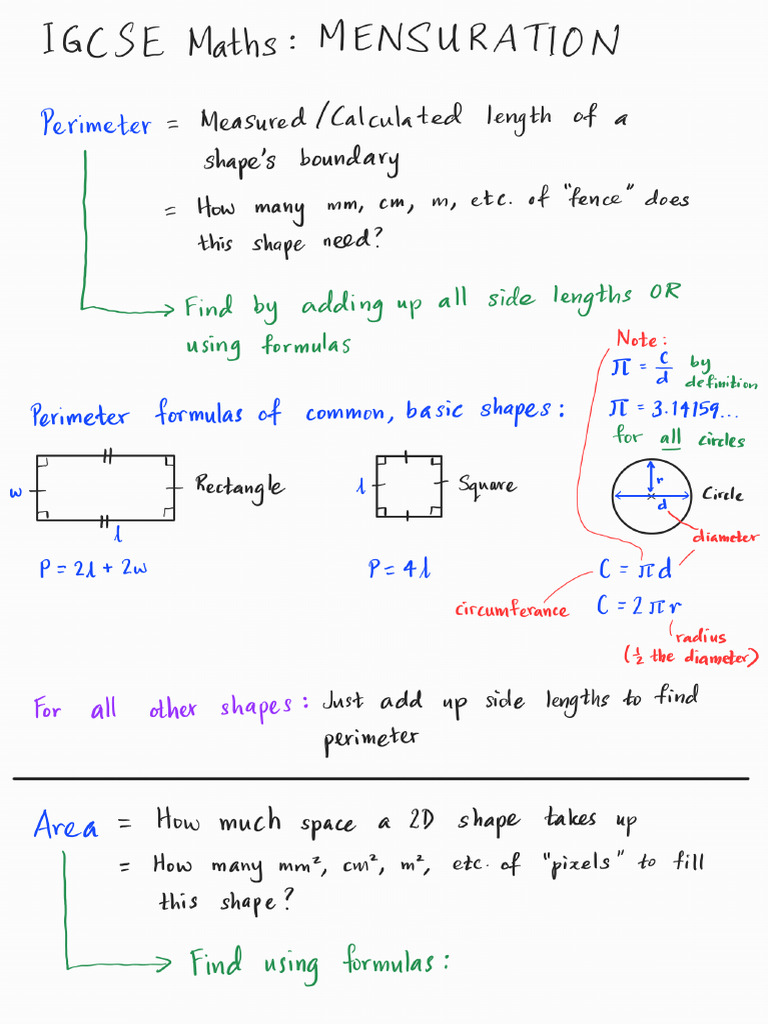 IGCSE Maths: MENSURATION
Perimeter = Measured/Calculated length of a
shape's boundary
= How many mm, cm, m, etc. of "fence" does
this shape need?
Find by adding up all side lengths OR
using formulas
Note:
π = C/d by definition
π = 3.14159...
for all circles
Perimeter formulas of common, basic shapes:
w
l
Rectangle
P = 2l + 2w
l
Square
P = 4l
r
d
Circle
diameter
C = πd
circumferance
C = 2πr
radius
(½ the diameter)
For all other shapes: Just add up side lengths to find
perimeter
Area = How much space a 2D shape takes up
= How many mm², cm², m², etc. of "pixels" to fill
this shape?
Find using formulas: